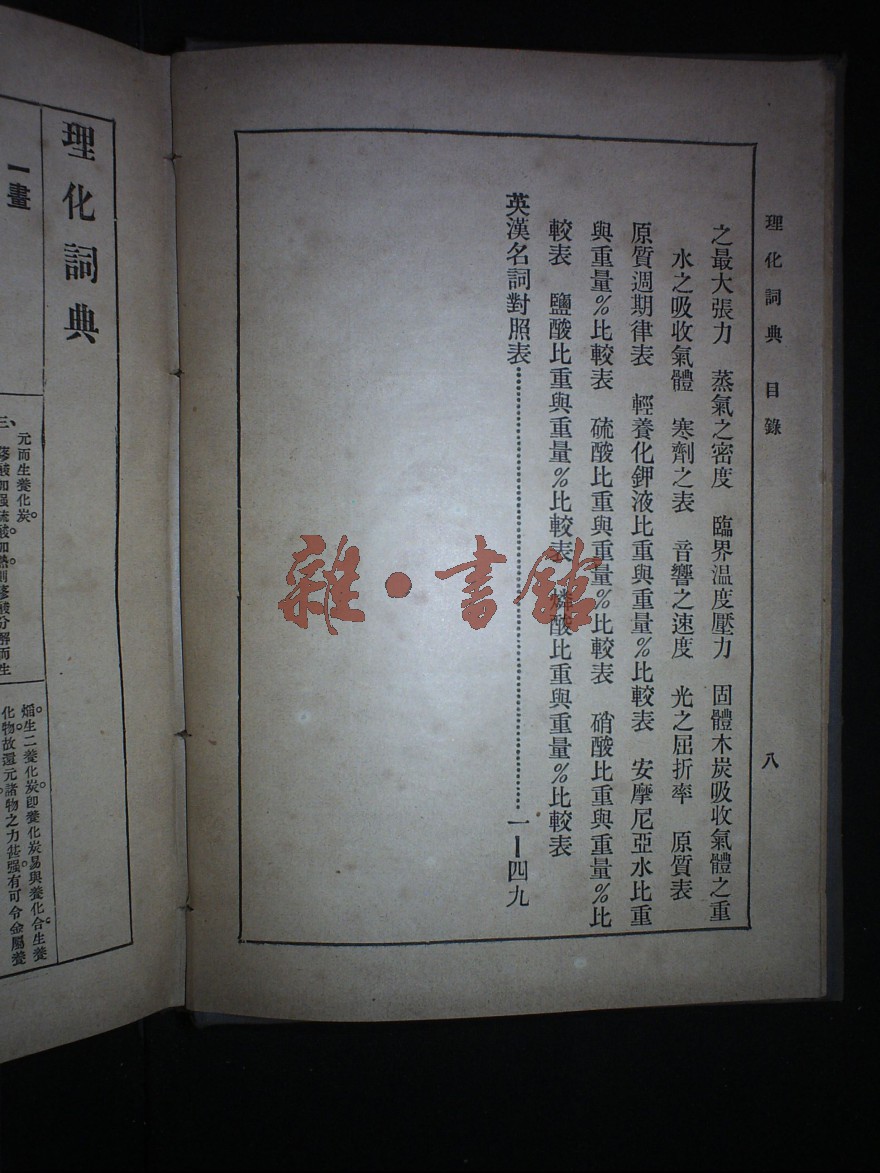 理化詞典 目錄 八
之最大張力 蒸氣之密度 臨界温度壓力 固體木炭吸收氣體之重
水之吸收氣體 寒劑之表 音響之速度 光之屈折率 原質表
原質週期律表 輕養化鉀液比重與重量%比較表 安摩尼亞水比重
與重量%比較表 硫酸比重與重量%比較表 硝酸比重與重量%比
較表 鹽酸比重與重量%比較表 燐酸比重與重量%比較表
英漢名詞對照表……一－四九
雜·書館
理化詞典
一畫
元而生養化炭。
三、蓚酸加强硫酸加熱則蓚酸分解而生
焰生二養化炭。即養化炭易與養化合生養
化物。故還元諸物之力甚强。有可令金屬養